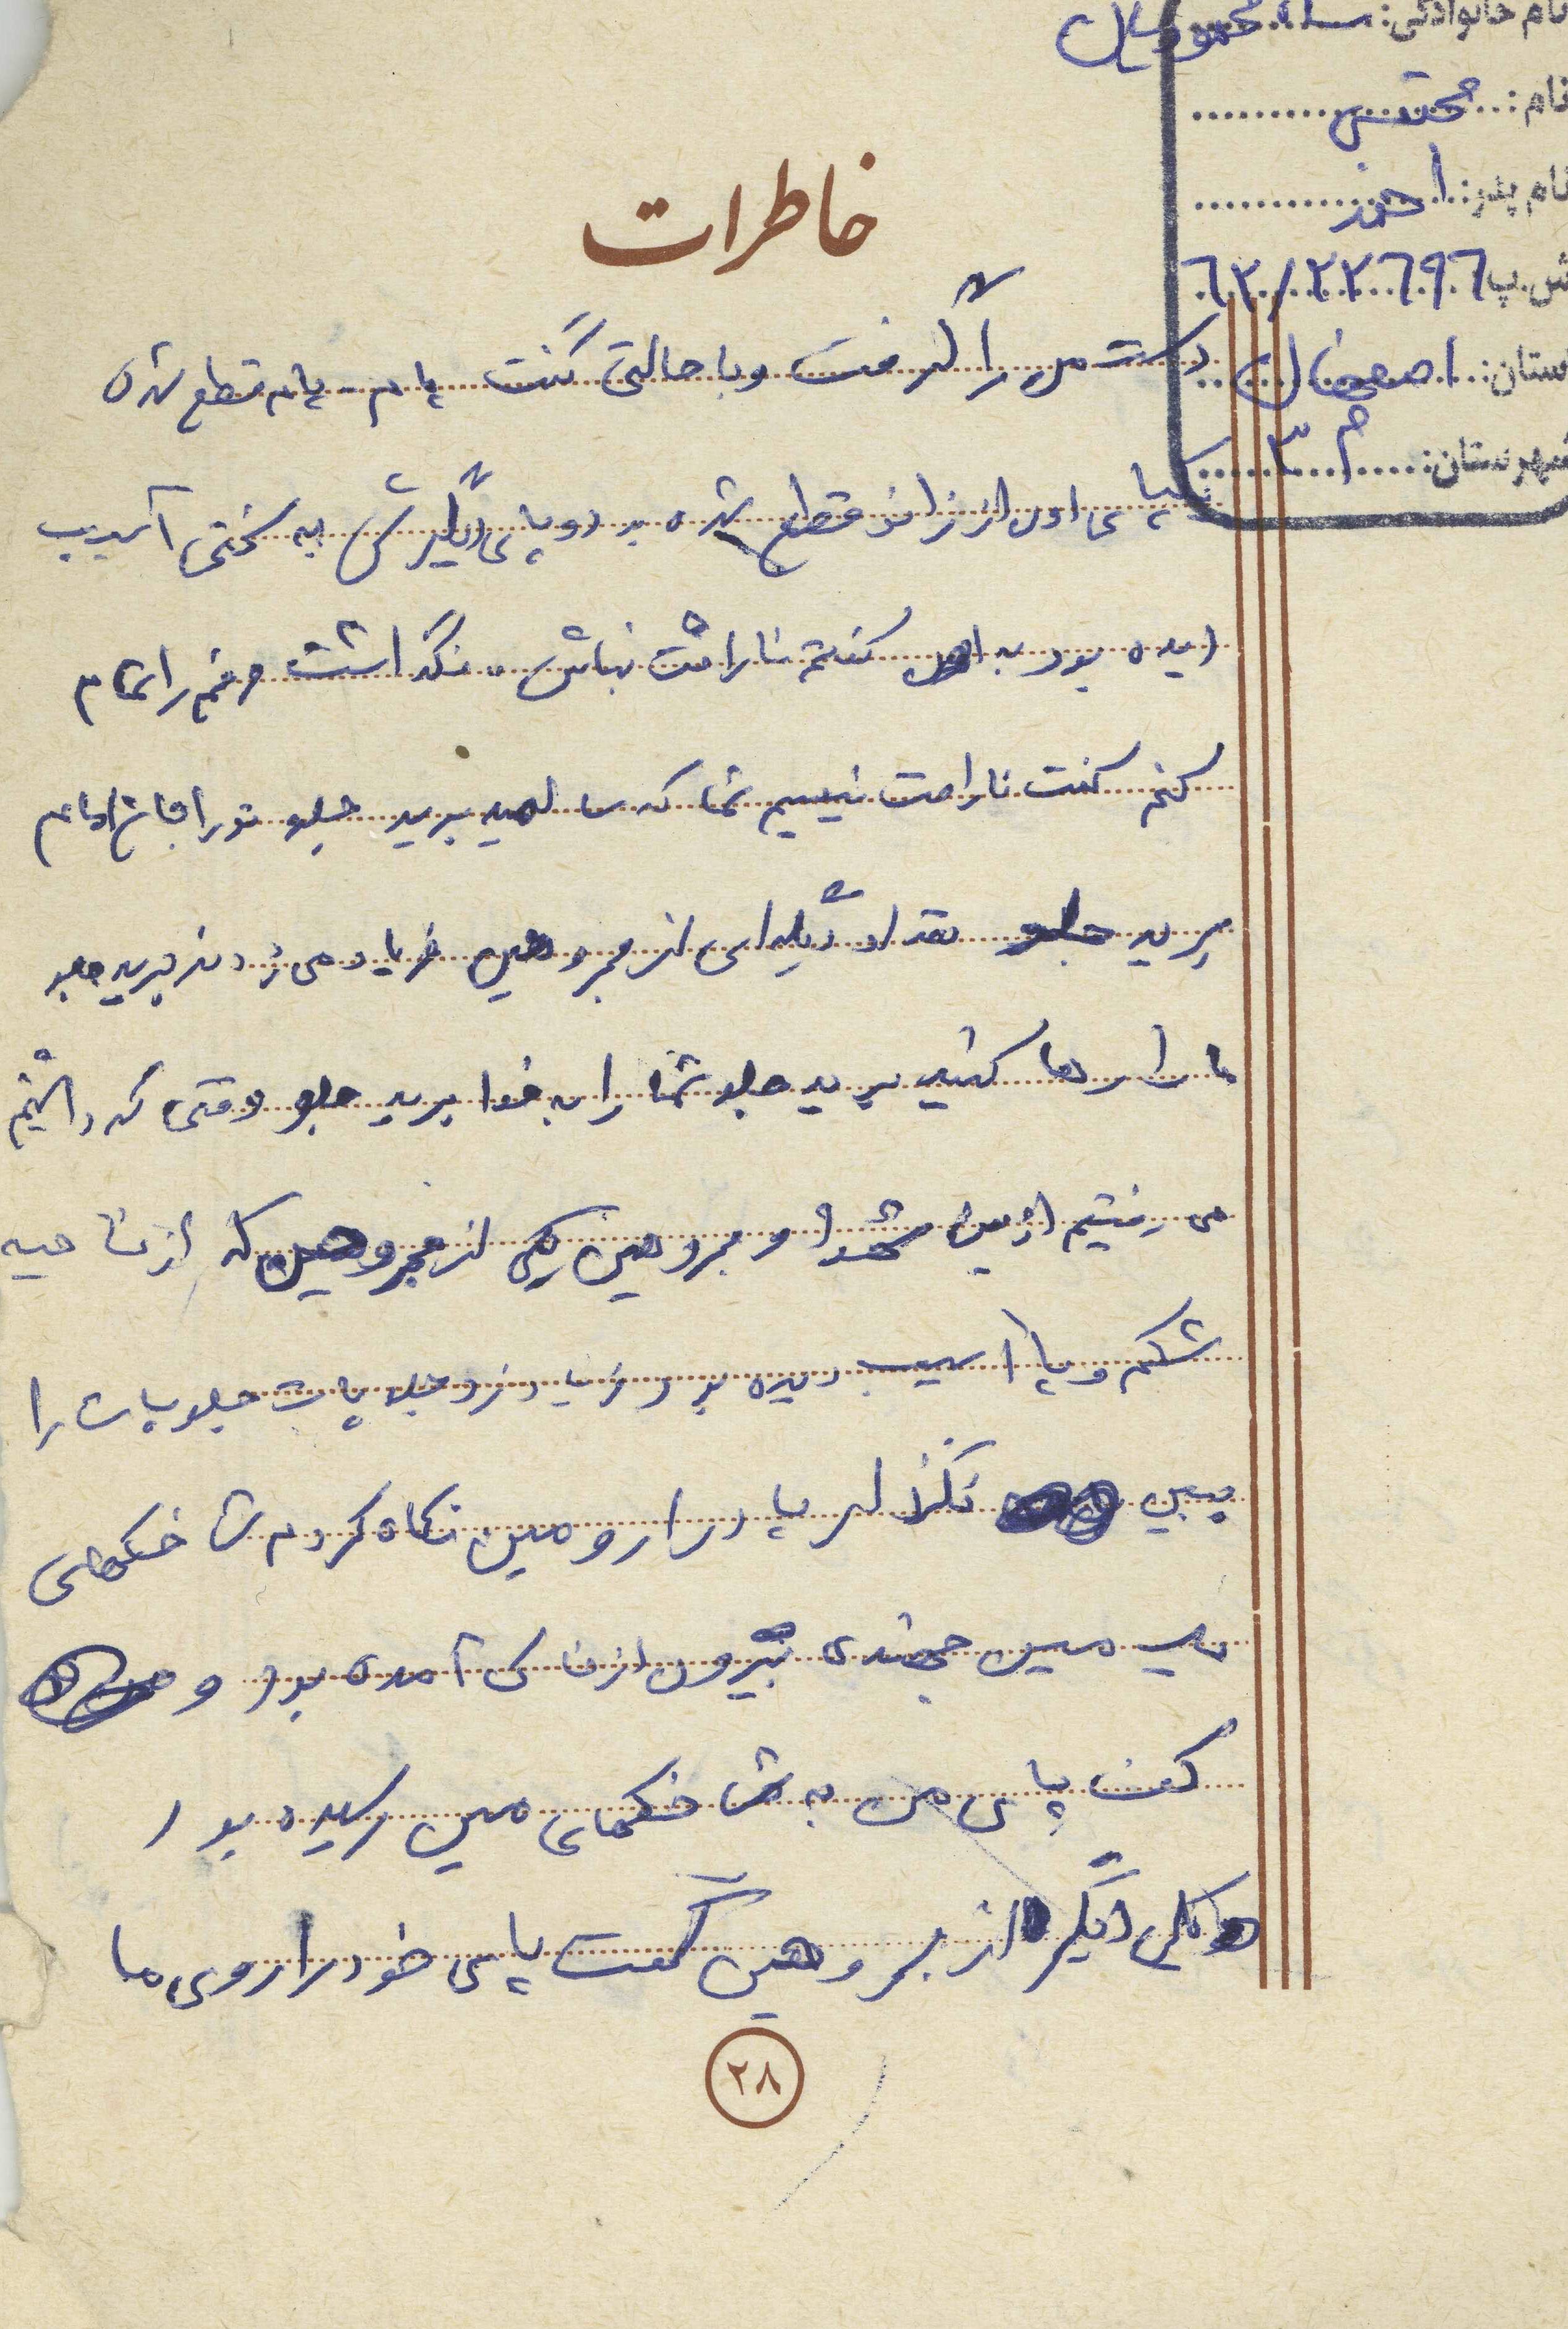 نام خانوادگی: شاه محمودیان
نام: مجتبی
نام پدر: احمد
ش.پ ٦٢/٢٢٦٩٦
استان: اصفهان
شهرستان: م ٣
خاطرات
دست من را گرفت و با حالتی گفت پام - پام قطع شده
یکپای اون از زانو قطع شده بود و پای دیگرش به سختی آسیب
دیده بود به اون گفتم ناراحت نباش. نگذاشت حرفم را تمام
کنم گفت ناراحت نیستم شما که سالمید برید جلو تو را بجان امام
برید جلو تعداد دیگه‌ای از مجروحین فریاد می زدند برید جلو
ما را رها کنید برید جلو شما را به خدا برید جلو وقتی که داشتیم
می رفتیم از بین شهدا و مجروحین یکی از مجروحین که از ناحیه
شکم و پا آسیب دیده بود فریاد زد جلو پات جلو پات را
ببین نگذار پا در رو مین نگاه کردم شاخکهای
یک مین جهنده بیرون از خاک آمده بود و
کف پای من به شاخکهای مین رسیده بود
یکی دیگر از مجروحین گفت پای خود را روی ما
٢٨